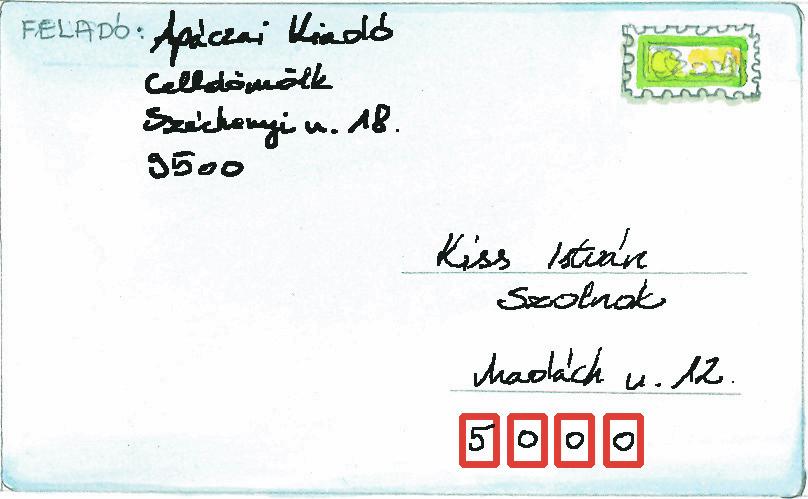 FELADÓ: Apáczai Kiadó
Celldömölk
Széchenyi u. 18.
9500
Kiss István
Szolnok
Madách u. 12.
5000